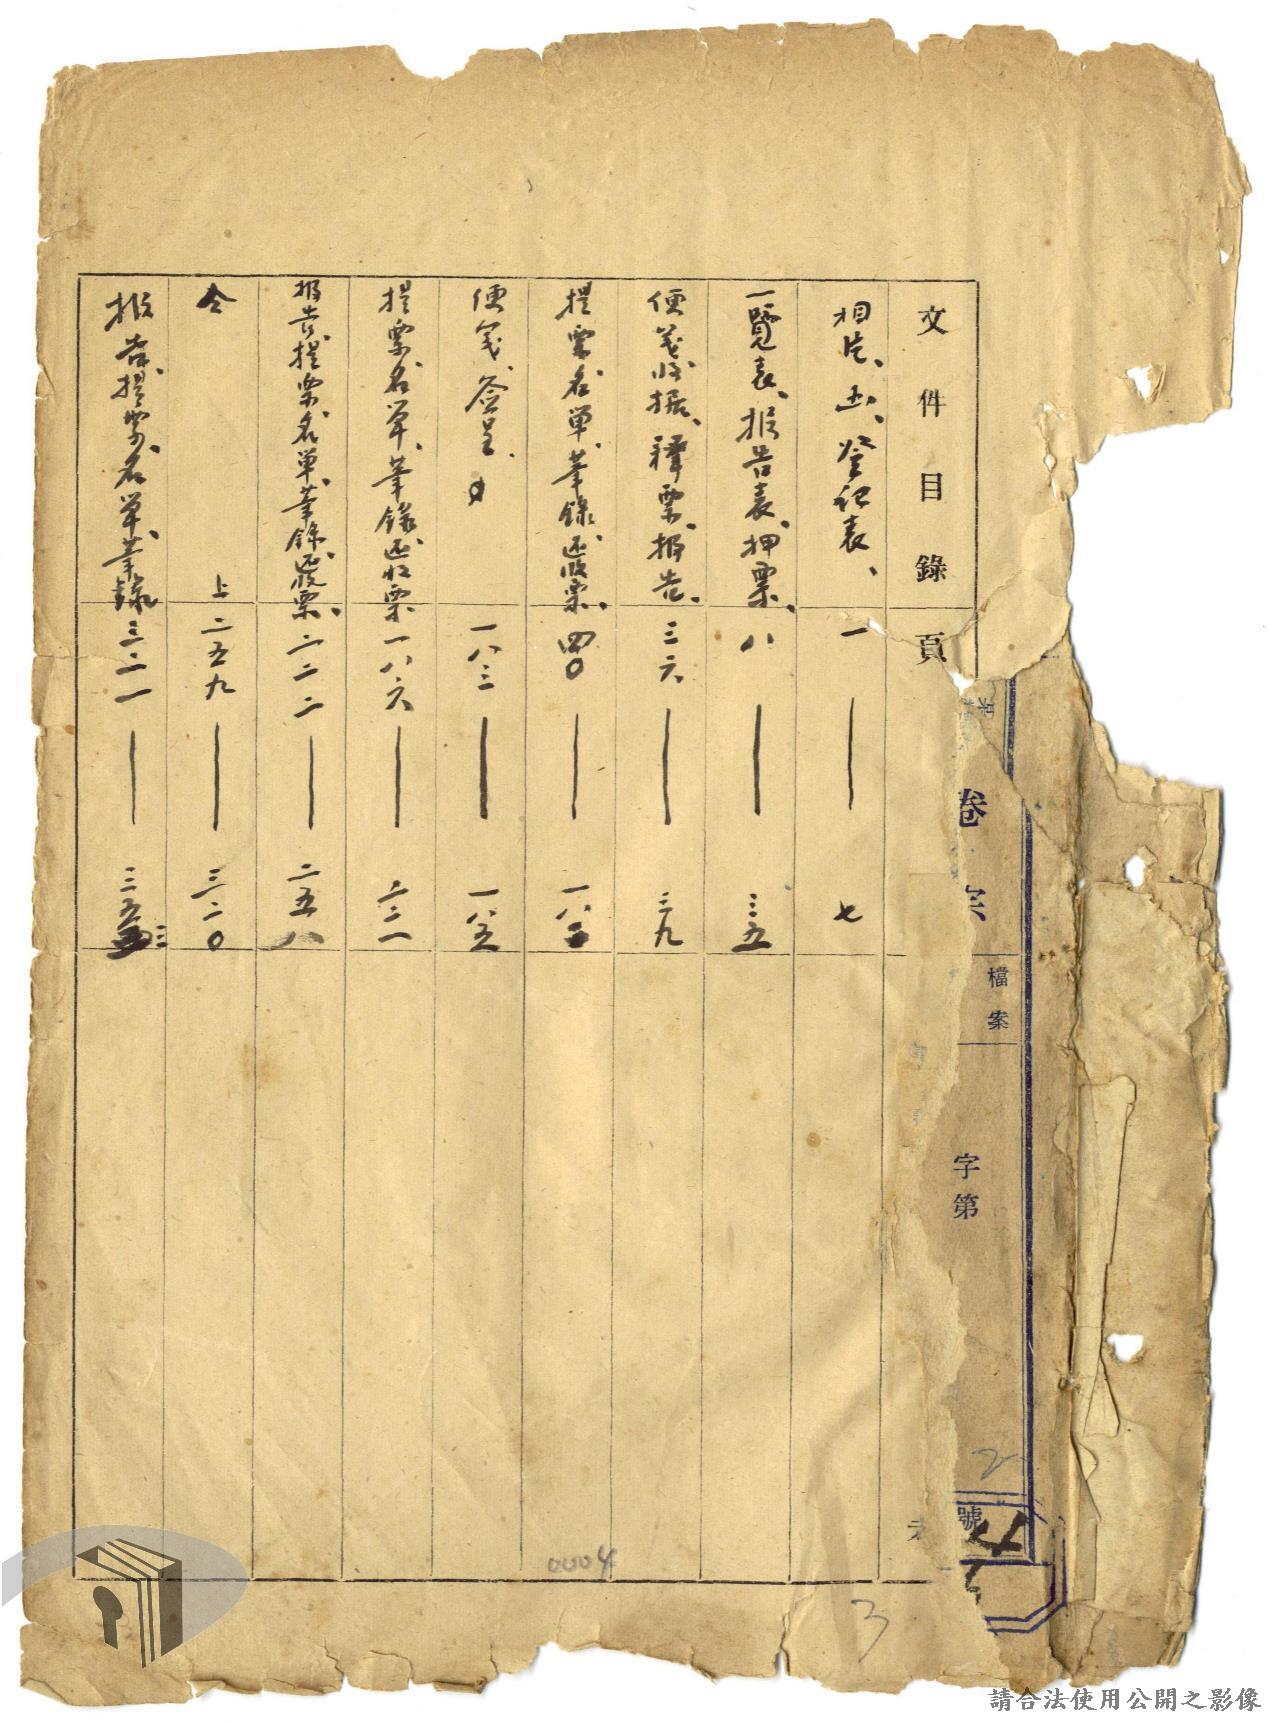 文件目錄 頁
相片、函、登記表、 一 — 七
一覽表、报告表、押票、 八 — 三五
便箋、收据、釋票、报告、 三六 — 三九
提票、名单、筆錄、还收票、 四〇 — 一八二
便箋、签呈、 一八三 — 一八五
提票、名单、筆錄、还收票 一八六 — 二二一
报告、提票、名单、筆錄、还收票、 二二二 — 二五八
仝上 二五九 — 三二〇
报告、提票、名单、筆錄 三二一 — 三五三
卷宗
檔案
字第
號
2
3
0004
請合法使用公開之影像